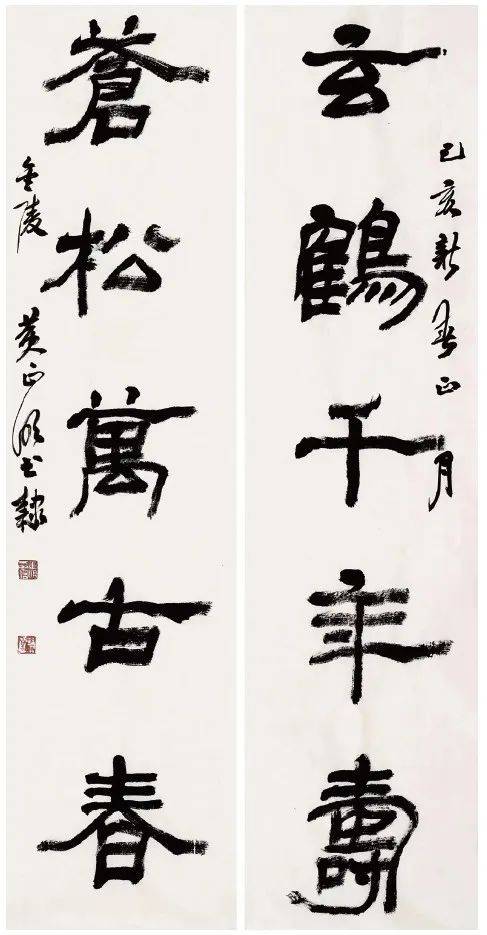 玄鶴千年壽
己亥新春正月
蒼松萬古春
金陵 黄正明書隸